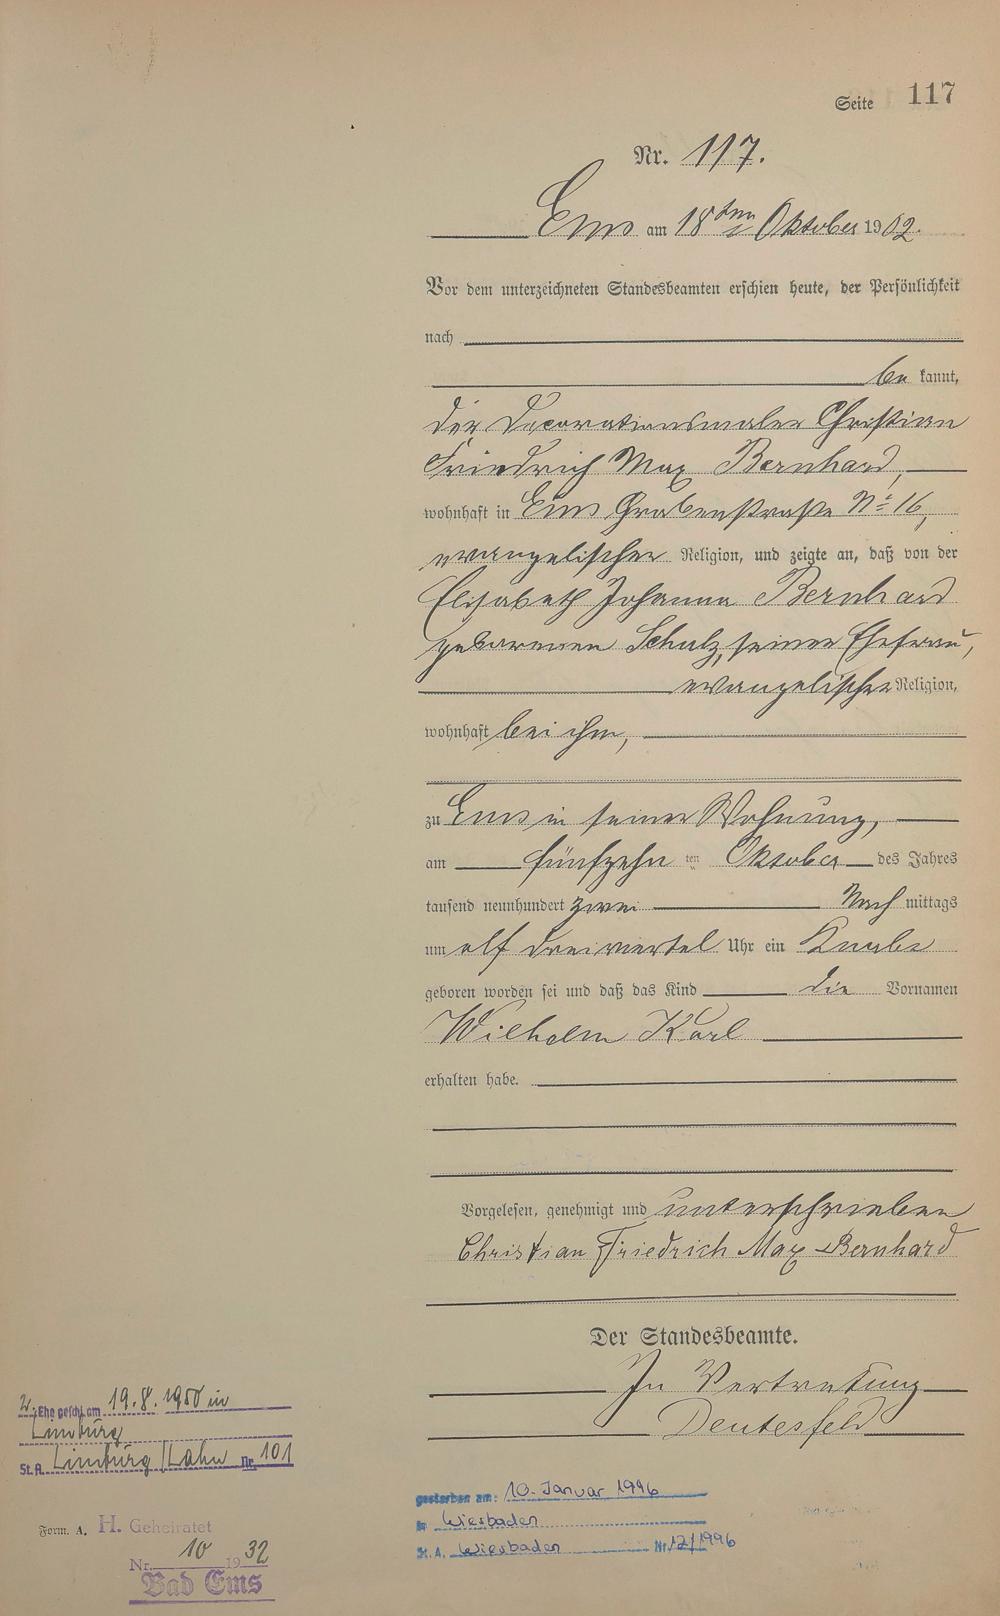 Seite 117
Nr. 117.
Ems am 18ten Oktober 1902.
Vor dem unterzeichneten Standesbeamten erschien heute, der Persönlichkeit
nach
be kannt,
der Decorationsmaler Christian
Friedrich Max Bernhard,
wohnhaft in Ems Grabenstraße No 16,
evangelischer Religion, und zeigte an, daß von der
Elisabeth Johanna Bernhard
geborenen Schulz, seiner Ehefrau,
evangelischer Religion,
wohnhaft bei ihm,
zu Ems in seiner Wohnung,
am fünfzehn ten Oktober des Jahres
tausend neunhundert zwei Nach mittags
um elf dreiviertel Uhr ein Knabe
geboren worden sei und daß das Kind die Vornamen
Wilhelm Karl
erhalten habe.
Vorgelesen, genehmigt und unterschrieben
Christian Friedrich Max Bernhard
Der Standesbeamte.
In Vertretung
Deutesfeld
2. Ehe geschl. am 19.8.1950 in
Limburg
St. A. Limburg/Lahn Nr. 101
gestorben am: 10. Januar 1996
in Wiesbaden
St. A. Wiesbaden Nr. 12/1996
Form. A.
H. Geheiratet
Nr. 10 1932
Bad Ems